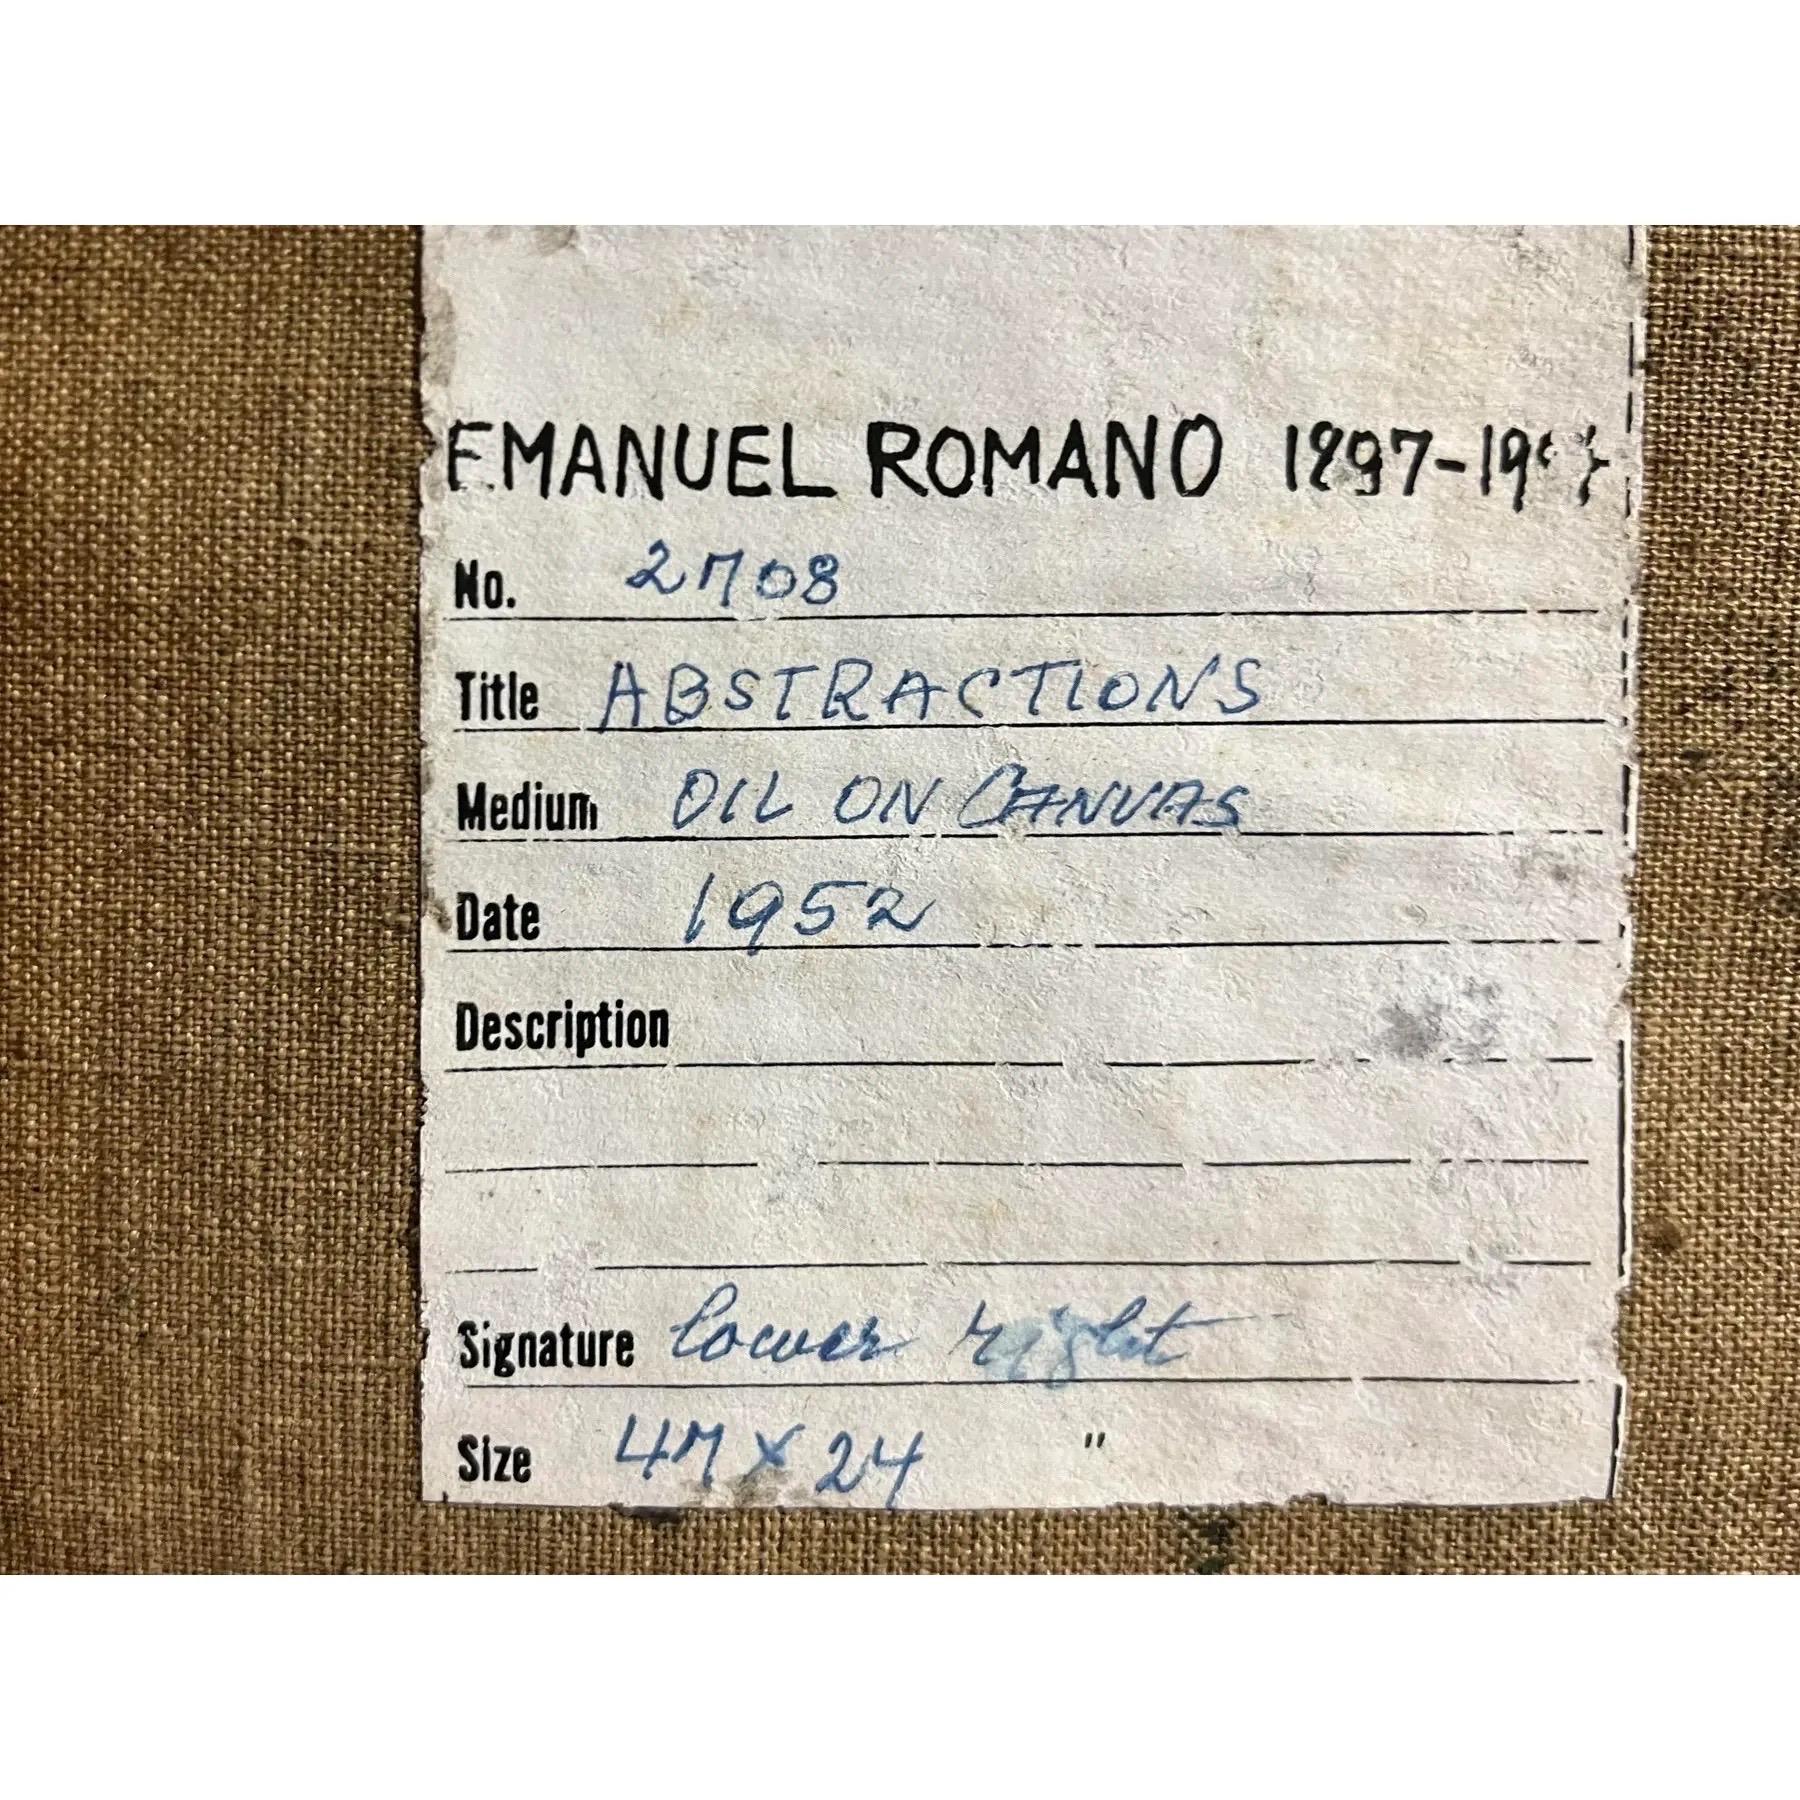 EMANUEL ROMANO 1897-19
No. 2708
Title ABSTRACTIONS
Medium OIL ON CANVAS
Date 1952
Description
Signature lower right
Size 47 x 24 "